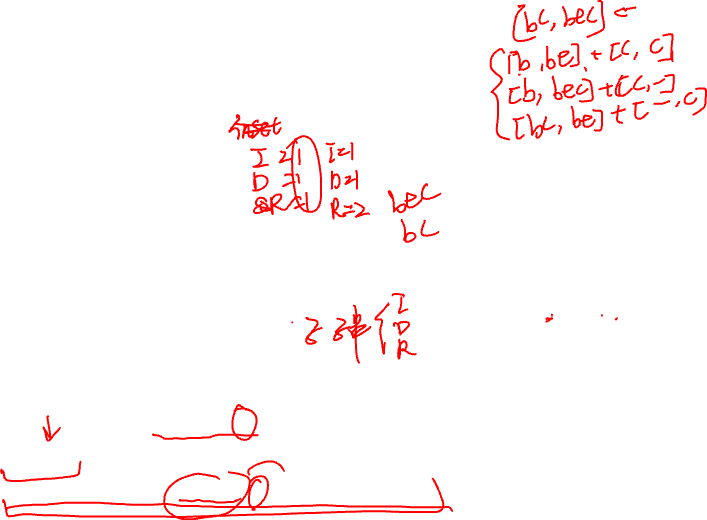 [bc, bec] ←
[b, be] + [c, c]
[b, bec] + [c, -]
[bc, be] + [-, c]
insert
I = 1 I=1
D = 1 D=1
R = 1 R=2
bec
bc
I
D
R